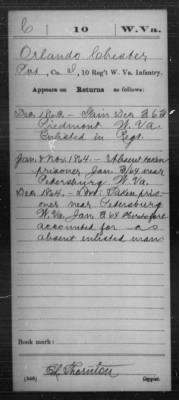 C 10 W.Va.
Orlando Chester
Pvt, Co. D, 10 Reg't W. Va. Infantry.
Appears on Returns as follows:
Piedmont W. Va
Enlisted in Regt.
Jan & Nov 1864 - Absent taken
prisoner Jan 3/64 near
Petersburg W. Va.
Dec 1864. - Taken pris-
oner near Petersburg
W. Va. Jan 3 64 heretofore
accounted for as
absent enlisted man
Book mark:
Thornton
(546) Copyist.